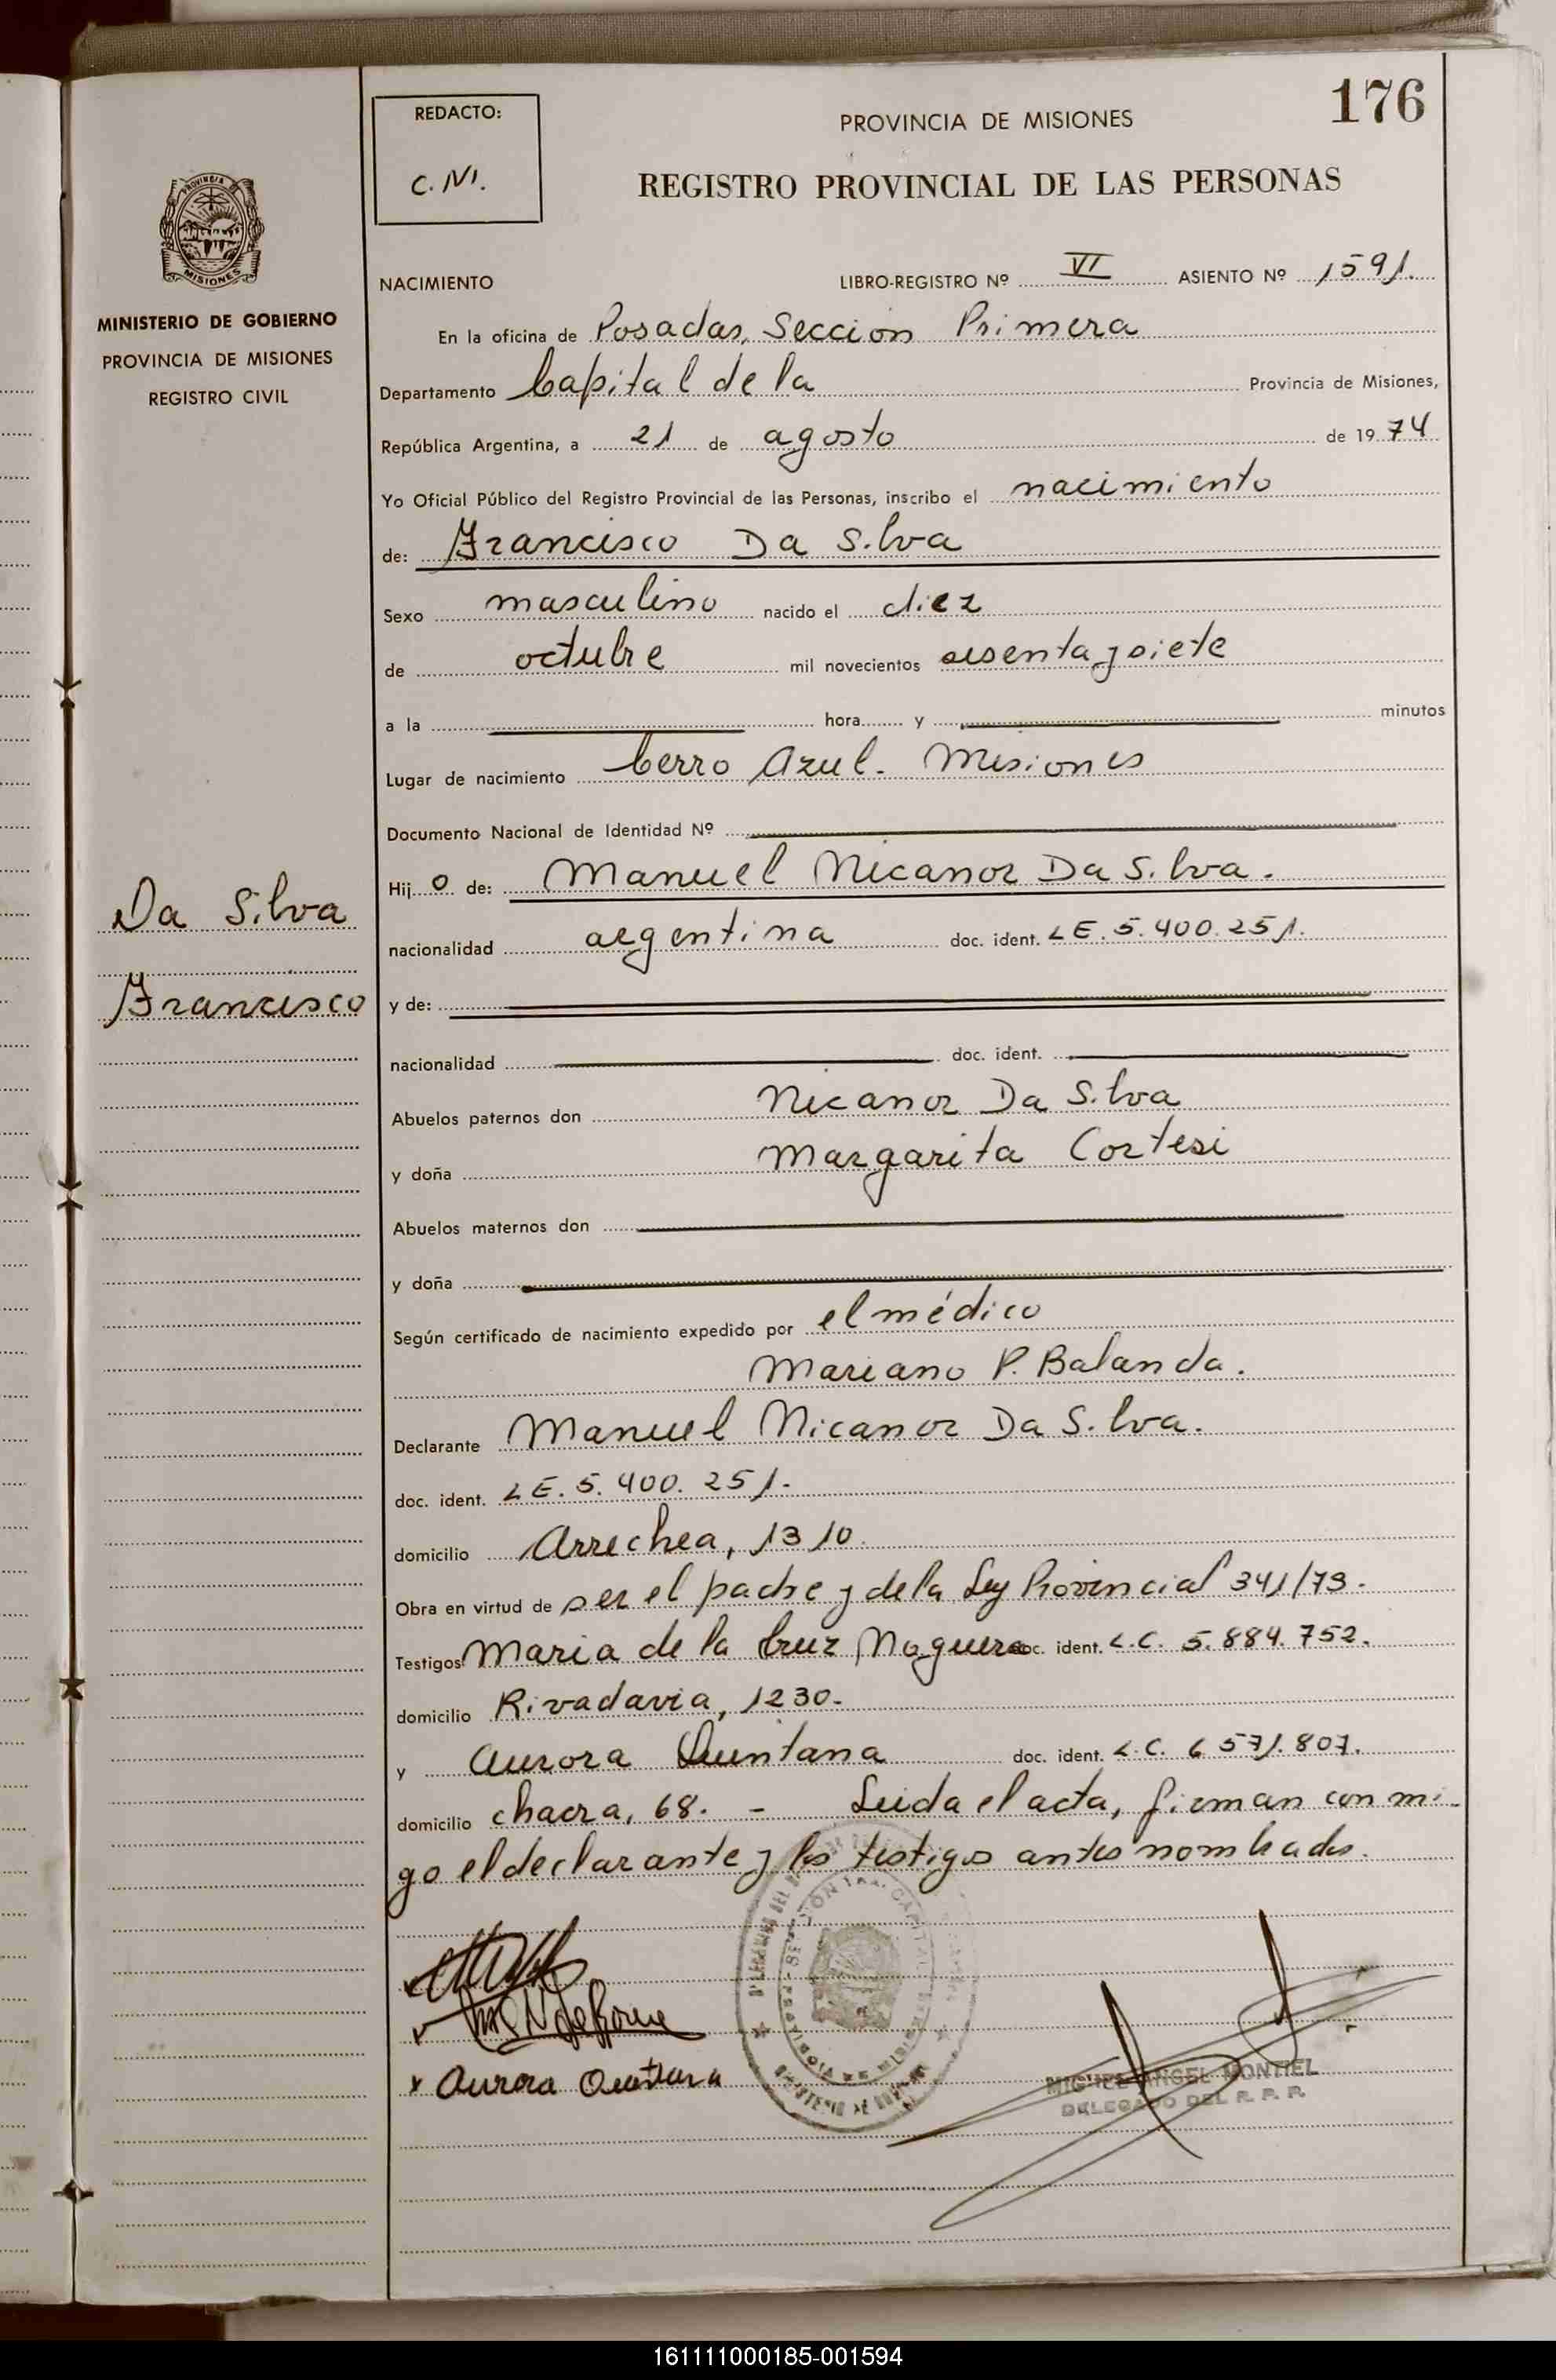 176
REDACTO:
C. M.
PROVINCIA DE MISIONES
REGISTRO PROVINCIAL DE LAS PERSONAS
PROVINCIA DE
MISIONES
MINISTERIO DE GOBIERNO
PROVINCIA DE MISIONES
REGISTRO CIVIL
NACIMIENTO LIBRO-REGISTRO Nº VI ASIENTO Nº 1591.
En la oficina de Posadas, Sección Primera
Departamento Capital de la Provincia de Misiones,
República Argentina, a 21 de agosto de 1974
Yo Oficial Público del Registro Provincial de las Personas, inscribo el nacimiento
de: Francisco Da Silva
Sexo masculino nacido el diez
de octubre mil novecientos sesenta y siete
a la hora y minutos
Lugar de nacimiento Cerro Azul. Misiones
Documento Nacional de Identidad Nº
Hijo de: Manuel Nicanor Da Silva.
Da Silva
nacionalidad argentina doc. ident. LE. 5.400.251.
Francisco
y de:
nacionalidad doc. ident.
Abuelos paternos don Nicanor Da Silva
y doña Margarita Cortesi
Abuelos maternos don
y doña
Según certificado de nacimiento expedido por el médico
Mariano P. Balanda.
Declarante Manuel Nicanor Da Silva.
doc. ident. LE. 5.400.251.
domicilio Arrechea, 1310.
Obra en virtud de ser el padre y de la Ley Provincial 341/73.
Testigos Maria de la Cruz Noguera doc. ident. L.C. 5.884.752.
domicilio Rivadavia, 1230.
y Aurora Quintana doc. ident. L.C. 6.571.807.
domicilio chacra, 68. - Leida el acta, firman conmi-
go el declarante y los testigos antes nombrados.
x Aurora Quintana
MIGUEL ANGEL MONTIEL
DELEGADO DEL R. P. P.
161111000185-001594